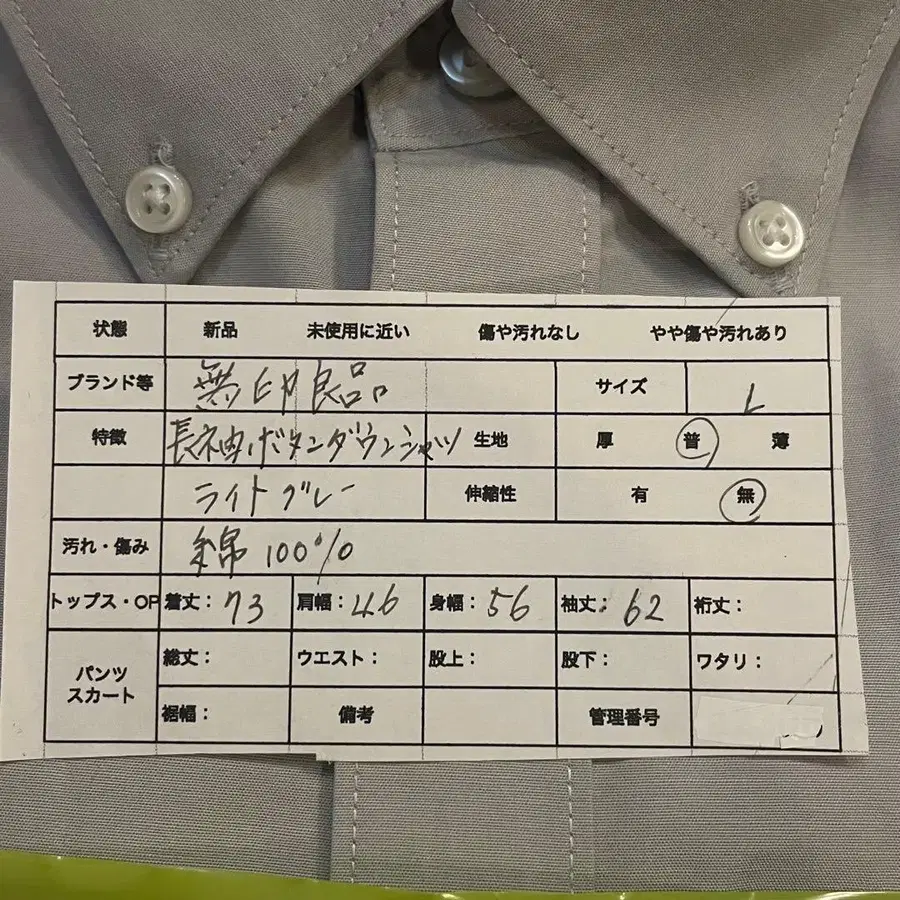 状態 新品 未使用に近い 傷や汚れなし やや傷や汚れあり
ブランド等 無印良品 サイズ L
特徴 長袖ボタンダウンシャツ 生地 厚 普 薄
ライトグレー 伸縮性 有 無
汚れ・傷み 綿100%
トップス・OP 着丈:73 肩幅:46 身幅:56 袖丈:62 裄丈:
パンツ 総丈: ウエスト: 股上: 股下: ワタリ:
スカート 裾幅: 備考 管理番号